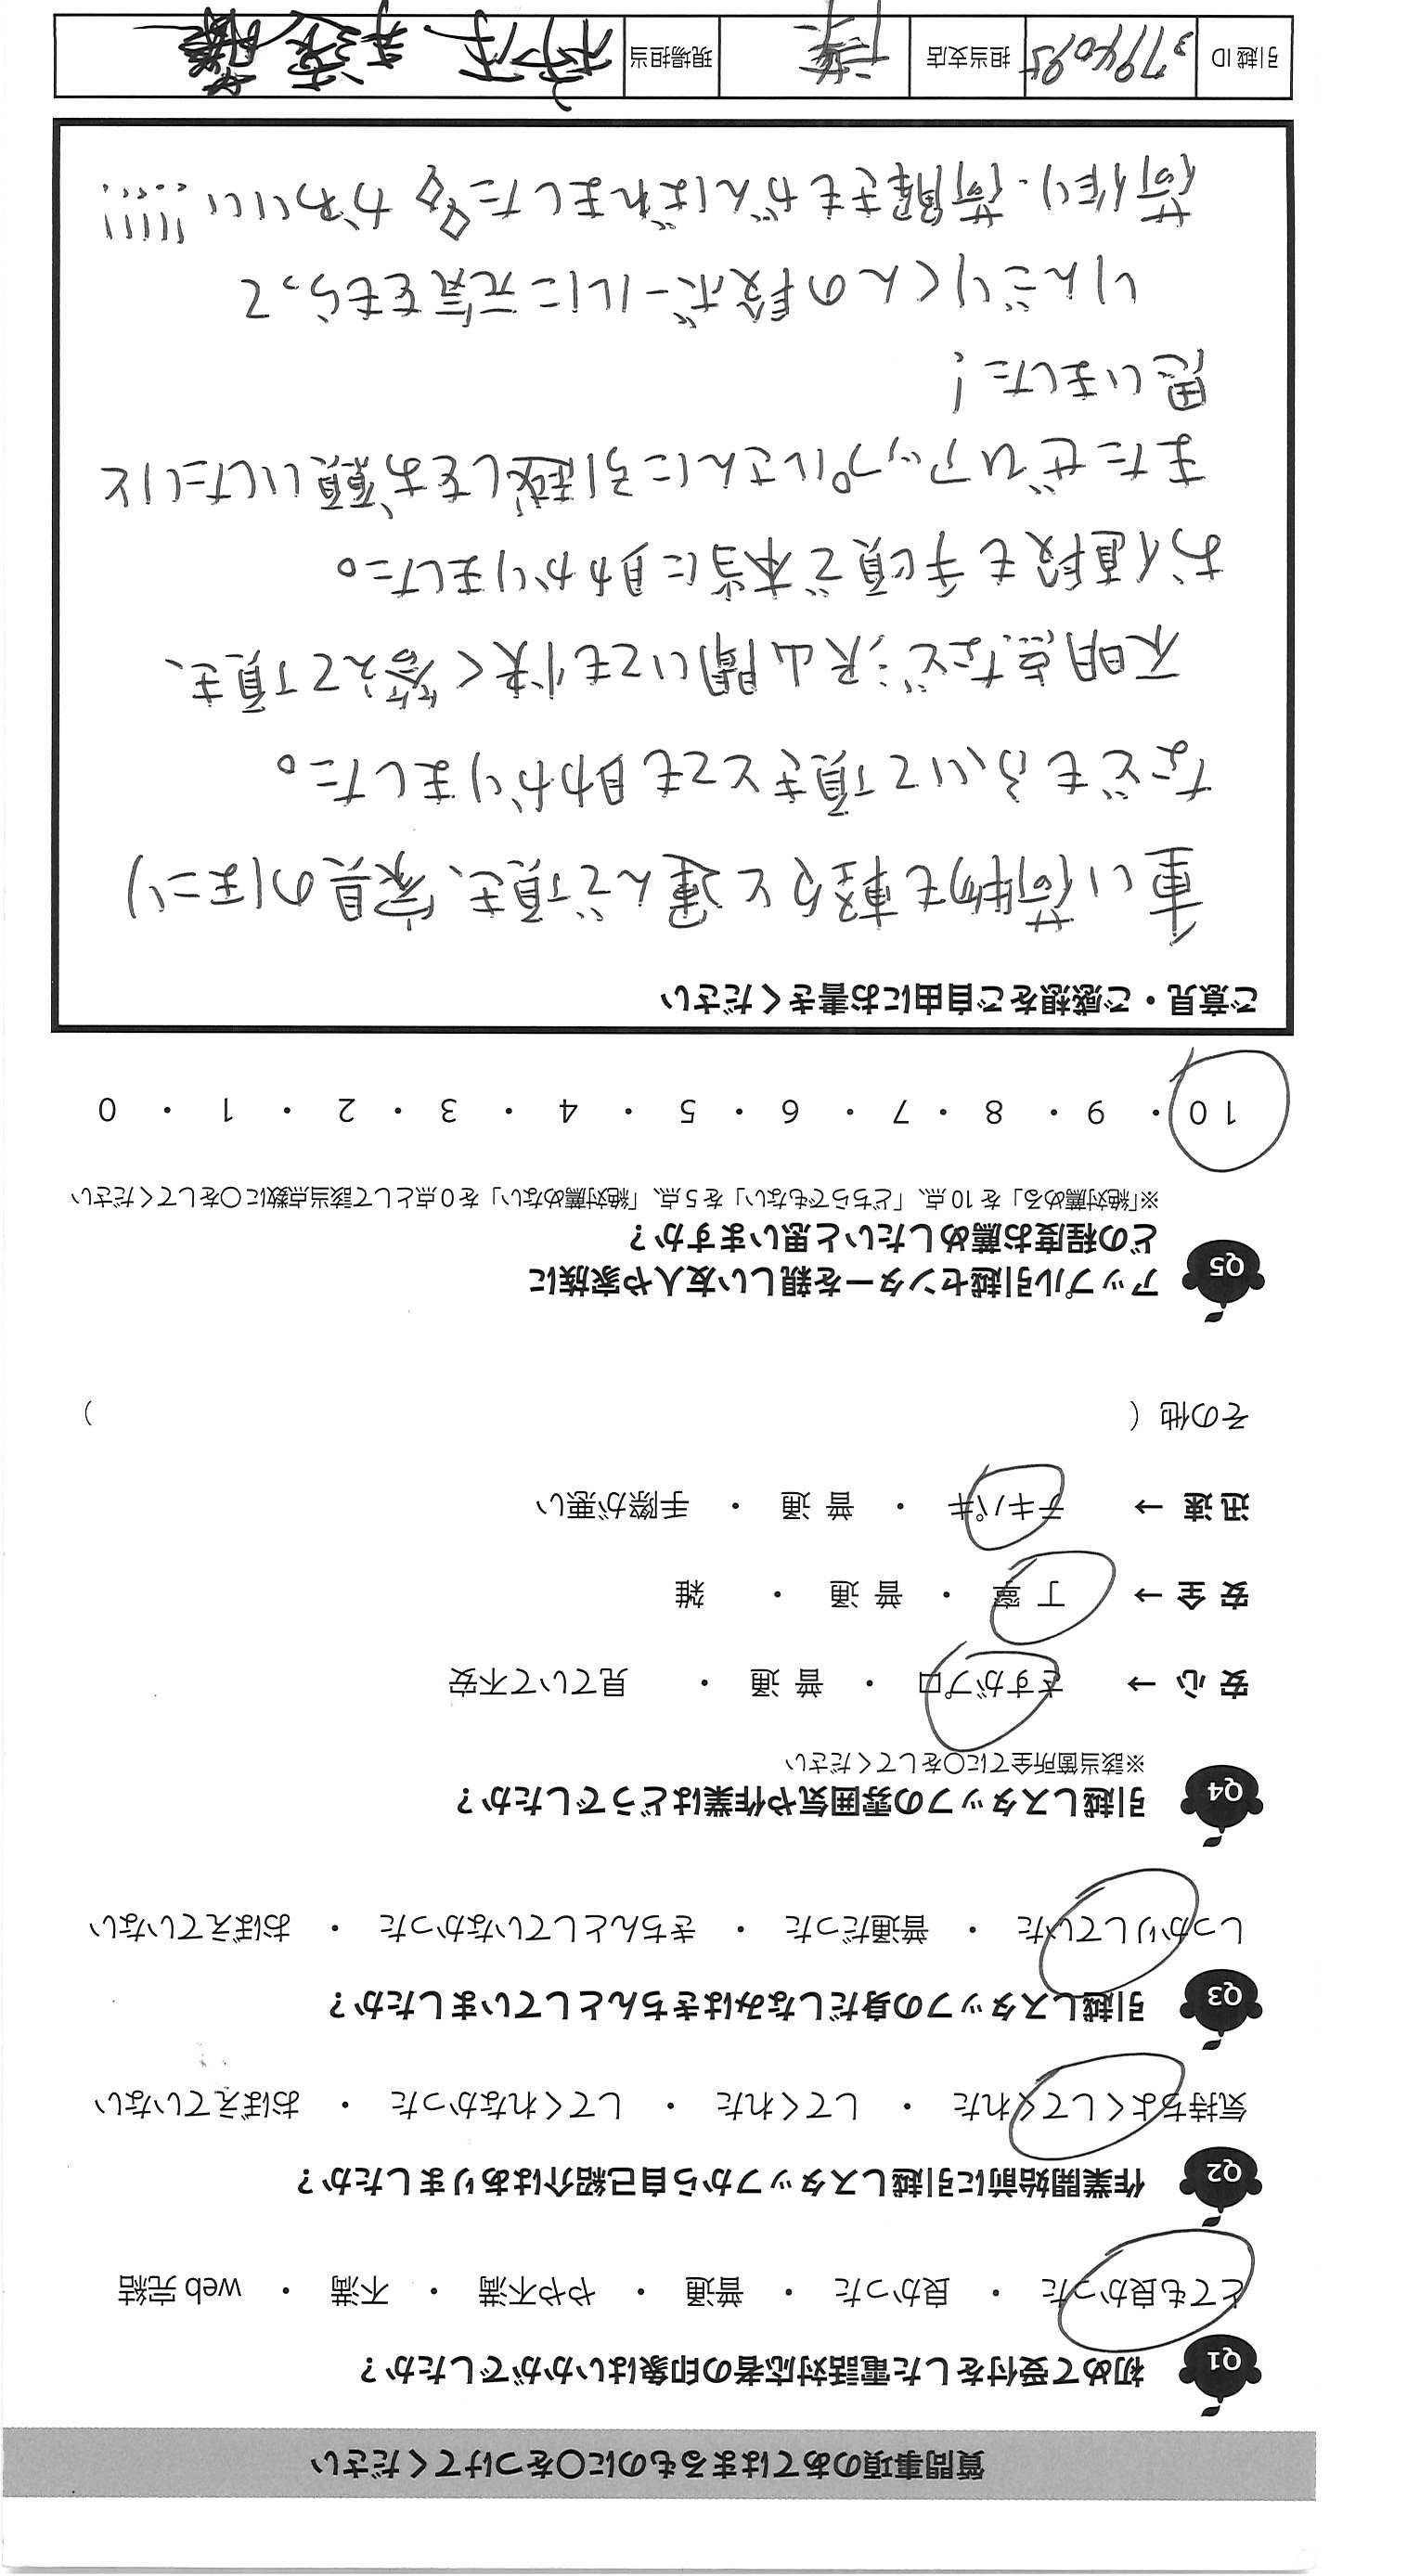 質問事項のあてはまるものに〇をつけてください
Q1 初めて受付をした電話対応者の印象はいかがでしたか？
とても良かった ・ 良かった ・ 普通 ・ やや不満 ・ 不満 ・ web 完結
Q2 作業開始前に引越しスタッフから自己紹介はありましたか？
気持ちよくしてくれた ・ してくれた ・ してくれなかった ・ おぼえていない
Q3 引越しスタッフの身だしなみはきちんとしていましたか？
しっかりしていた ・ 普通だった ・ きちんとしていなかった ・ おぼえていない
Q4 引越しスタッフの雰囲気や作業はどうでしたか？
※該当箇所全てに〇をしてください
安 心 → さすがプロ ・ 普 通 ・ 見ていて不安
安 全 → 丁 寧 ・ 普 通 ・ 雑
迅 速 → テキパキ ・ 普 通 ・ 手際が悪い
その他（ ）
Q5 アップル引越センターを親しい友人や家族に
どの程度お薦めしたいと思いますか？
※「絶対薦める」を10点、「どちらでもない」を5点、「絶対薦めない」を0点として該当点数に〇をしてください
10 ・ 9 ・ 8 ・ 7 ・ 6 ・ 5 ・ 4 ・ 3 ・ 2 ・ 1 ・ 0
ご意見・ご感想をご自由にお書きください
重い荷物も軽々と運んで頂き、家具のほこり
などもふいて頂きとても助かりました。
不明点など沢山聞いても快く答えて頂き、
お値段も手頃で本当に助かりました。
またぜひアップルさんに引越しをお願いしたいと
思いました！
りんごりくんの段ボールに元気をもらって
荷作り・荷解きもがんばれました かわいい!!!!!
引越ID 3794095 担当支店 現場担当